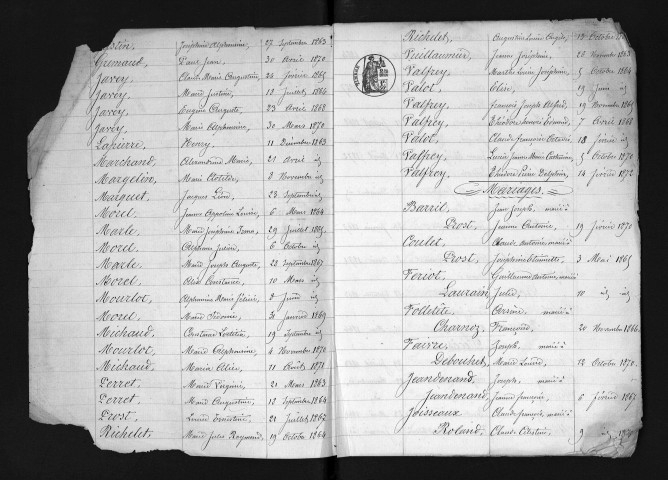 Joséphine Alphonsine, 27 Septembre 1863
Grimaud, Paul Jean, 30 Avril 1870
Javey, Claire Marie Augustine, 26 février 1865
Javey, Marie Justine, 13 Juillet 1866
Javey, Eugène Auguste, 23 Avril 1868
Javey, Marie Alphonsine, 30 Mars 1870
Lapierre, Henry, 11 Décembre 1863
Marchand, Alexandrine Marie, 21 Avril id
Margelin, Marie Clotilde, 3 Novembre id
Marquet, Jacques Léon, 23 Septembre
Morel, Jeanne Appoline Louise, 6 Mars 1864
Marle, Marie Joséphine 29 Juillet 1865
Morel, Alphonse Julien, 6 Octobre id
Marle, Marie Joseph Auguste, 28 Septembre 1867
Morel, Constance, 10 Mars id
Mourlot, Alphonsine Marie 2 Juin id
Morel, Marie 31 Janvier 1869
Michaud, Constance 19 Septembre id
Mourlot, Marie Alphonsine, 4 Novembre 1870
Michaud, Maria Alice, 11 Août 1871
Perret, Marie Virginie, 21 Mars 1863
Perret, Marie Augustine, 12 Septembre 1864
Prost, Louise Ernestine, 21 Juillet 1867
Richelet, Marie Julie Raymond, 19 Octobre 1864
Richelet, Augustin Louis 13 Octobre
Vuillaumier, Jeanne Joséphine, 28 Novembre 1863
Valfrey, Marthe Joséphine, 5 Octobre 1864
Valot, Élise, 19 Juin id
Valfrey, François Joseph Alfred, 19 Novembre 1865
Valfrey, Théodore 7 Avril 1868
Valot, Claude françois 18 février id
Valfrey, Lucie Jeanne Marie 5 Octobre 1870
Valfrey, Théodore 14 février 1872
Mariages.
Barril, Jean Joseph, marié à
Prost, Jeanne Antoine, 19 février 1870
Coulet, Claude Antoine, marié à
Prost, Joséphine 3 Mai 1865
Feriot, Guillaume Antoine, marié
Laurain, Julie, 10 id id
Folletête, Arsène, marié à
Charnoz, Françoise, 20 Novembre 1866
Faivre, Joseph, marié à
Debouchet, Marie Louise, 12 Octobre 1870
Jeandenand, Joseph, marié à
Jeandenand, Jeanne françoise, 6 février 1867
Joisseaux, Claude françois, marié à
Roland, Claude Célestine, 9 id